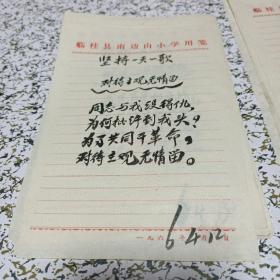 临桂县南边山小学用笺
坚持一天一歌
对待主观无情面
同志与我没得仇,
为何批评到我头?
为了共同干革命,
对待主观无情面。
一九六 6 年 4 月 12 日